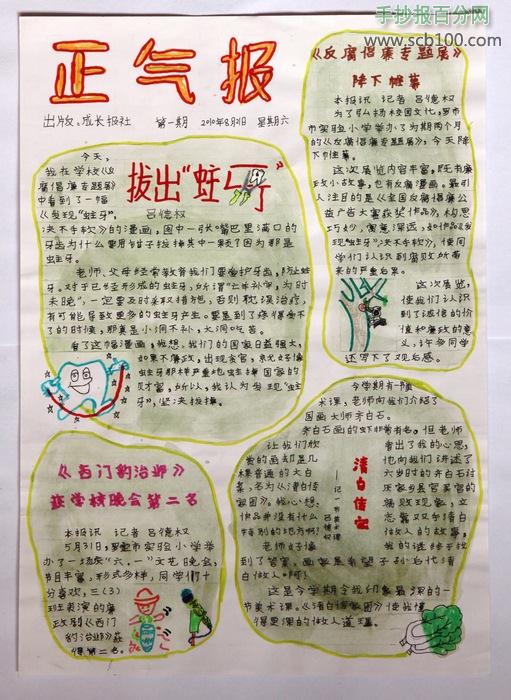 手抄报百分网
www.scb100.com
正气报
出版:成长报社 第一期 2010年8月21日 星期六
拔出“蛀牙”
吕德权
今天,
我在学校《反
腐倡廉专题展》
中看到了一幅
《发现“蛀牙”,
决不手软》的漫画,图中一张嘴巴里满口的
老师、父母经常教育我们要爱护牙齿,防止蛀
牙。对于已经形成的蛀牙,所谓“亡羊补牢,为时
未晚”,一定要及时采取措施,否则耽误治疗,
有可能导致更多的蛀牙产生。要是到了疼得受不
了的时候,那真是小洞不补,大洞吃苦。
看了这幅漫画,我想,我们的国家日益强大,
如果不廉政,出现贪官,就好像
蛀牙那样严重地蛀掉国家的
财富。所以,我认为发现“蛀
牙”,坚决拔掉。
《反腐倡廉专题展》
降下帷幕
本报讯 记者 吕德权
为了弘扬校园文化,罗市
市实验小学举办了为期两个月
的《反腐倡廉专题展》,今天降
下帷幕。
这次展览内容丰富,既有廉
政小故事,也有反腐漫画。最引
人注目的是《全国反腐倡廉公
益广告大赛获奖作品》,构思
巧妙,寓意深远,如作品《发
现“蛀牙”决不手软》,使同
学们认识到腐败所带
来的严重后果。
这次展览,
使我们认识到
了诚信的价
值和廉政的意
义,许多同学
还写下了观后感。
《西门豹治邺》
获学校晚会第二名
本报讯 记者 吕德权
5月31日,罗市市实验小学举
办了一场庆“六.一”文艺晚会,
节目丰富,形式多样,同学们十
分喜欢,三(3)
班表演的廉
政剧《西门
豹治邺》获
得第二名。
清白传家
——记一节美术课
吕德权
今学期有一个美
术课,老师向我们介绍了
国画大师齐白石。
齐白石画的虾非常有名。但老师
让我们欣
赏的画却是几
棵普通的大白
菜,名为《清白传
家图》。我心想,
作品并没有什么
特别的地方啊!
老师好像
看出了我的心思,
也向我们讲述了
六岁时的齐白石讨
厌家乡县官黑官的
腐败现象,立
志要双专清白
做人的故事,
到了答案,画家是希望子孙后代清
白做人啊!
这是今学期令我印象最深的一
节美术课。《清白传家图》使我懂
得更深的做人道理。